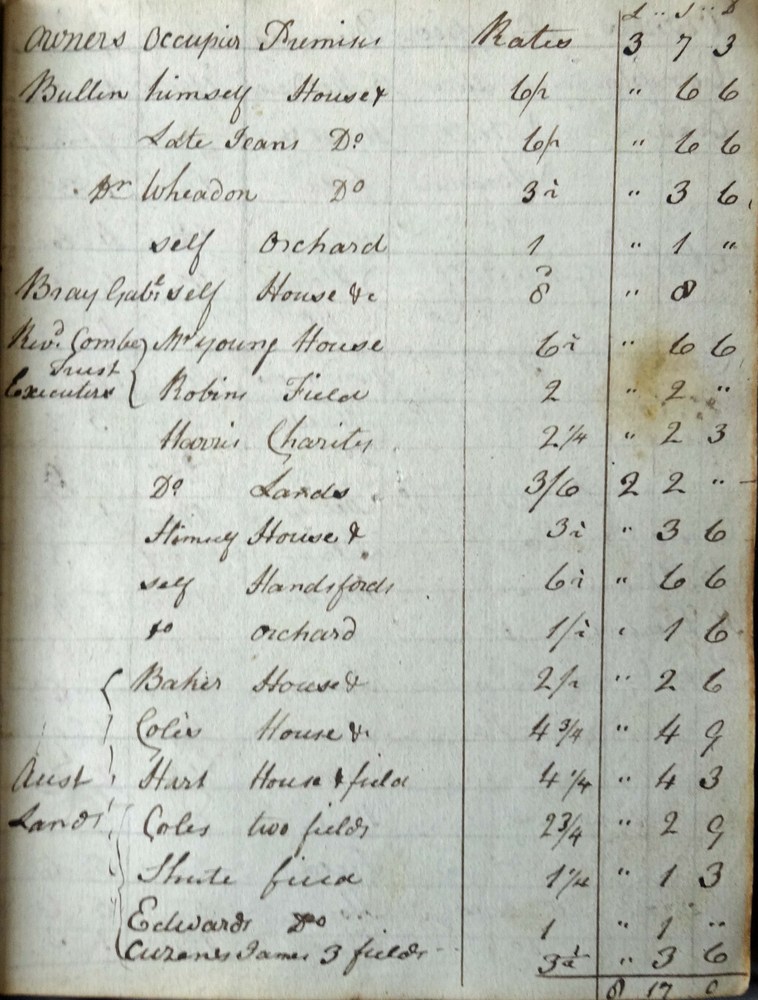 £ .. S .. D
Owners Occupier Premises Rates 3 7 3
Bullen himself House & 6½ " 6 6
Late Jeans Do 6½ " 6 6
Dr Wheadon Do 3½ " 3 6
self Orchard 1 " 1 "
Bray Gabl self House &c 8 " 8
Revd Combe Mr Young House 6½ " 6 6
Trust
Executers Robins Field 2 " 2 "
Harris Charity 2 1/4 " 2 3
Do Lands 3/6 2 2 "
House & 3½ " 3 6
self Handsfords 6½ " 6 6
do orchard 1/½ " 1 6
Baker House & 2½ " 2 6
Coles House & 4 3/4 " 4 9
Aust Hart House & field 4 1/4 " 4 3
Lands Coles two fields 2 3/4 " 2 9
Shute field 1 1/4 " 1 3
Edwards Do 1 " 1 "
James 3 fields 3½ " 3 6
8 17 0